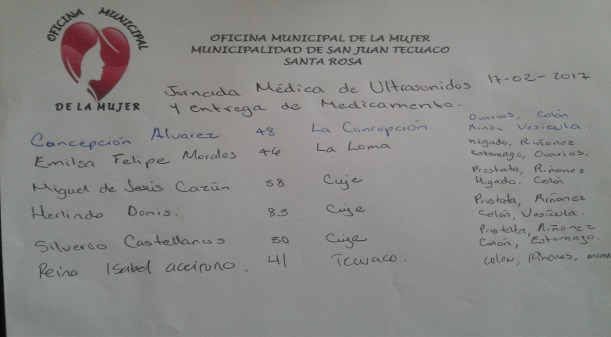 OFICINA MUNICIPAL
DE LA MUJER
OFICINA MUNICIPAL DE LA MUJER
MUNICIPALIDAD DE SAN JUAN TECUACO
SANTA ROSA
Jornada Médica de Ultrasonidos 17-02-2017
Y entrega de Medicamento.
Concepción Alvarez 48 La Concepción Ovarios, Colón
Vesicula.
Emilsa Felipe Morales 46 La Loma Higado, Riñonez
Estomago, Ovarios.
Miguel de Jesús Cazún 58 Cuje Prostata, Riñonez
Higado. Colón
Herlindo Donis. 83 Cuje Prostata, Riñonez
Colón, Vesícula.
Silverio Castellanos 80 Cuje Prostata, Riñonez
Colón, Estomago.
Reina Isabel aceituno. 41 Tecuaco. colon, Riñones,